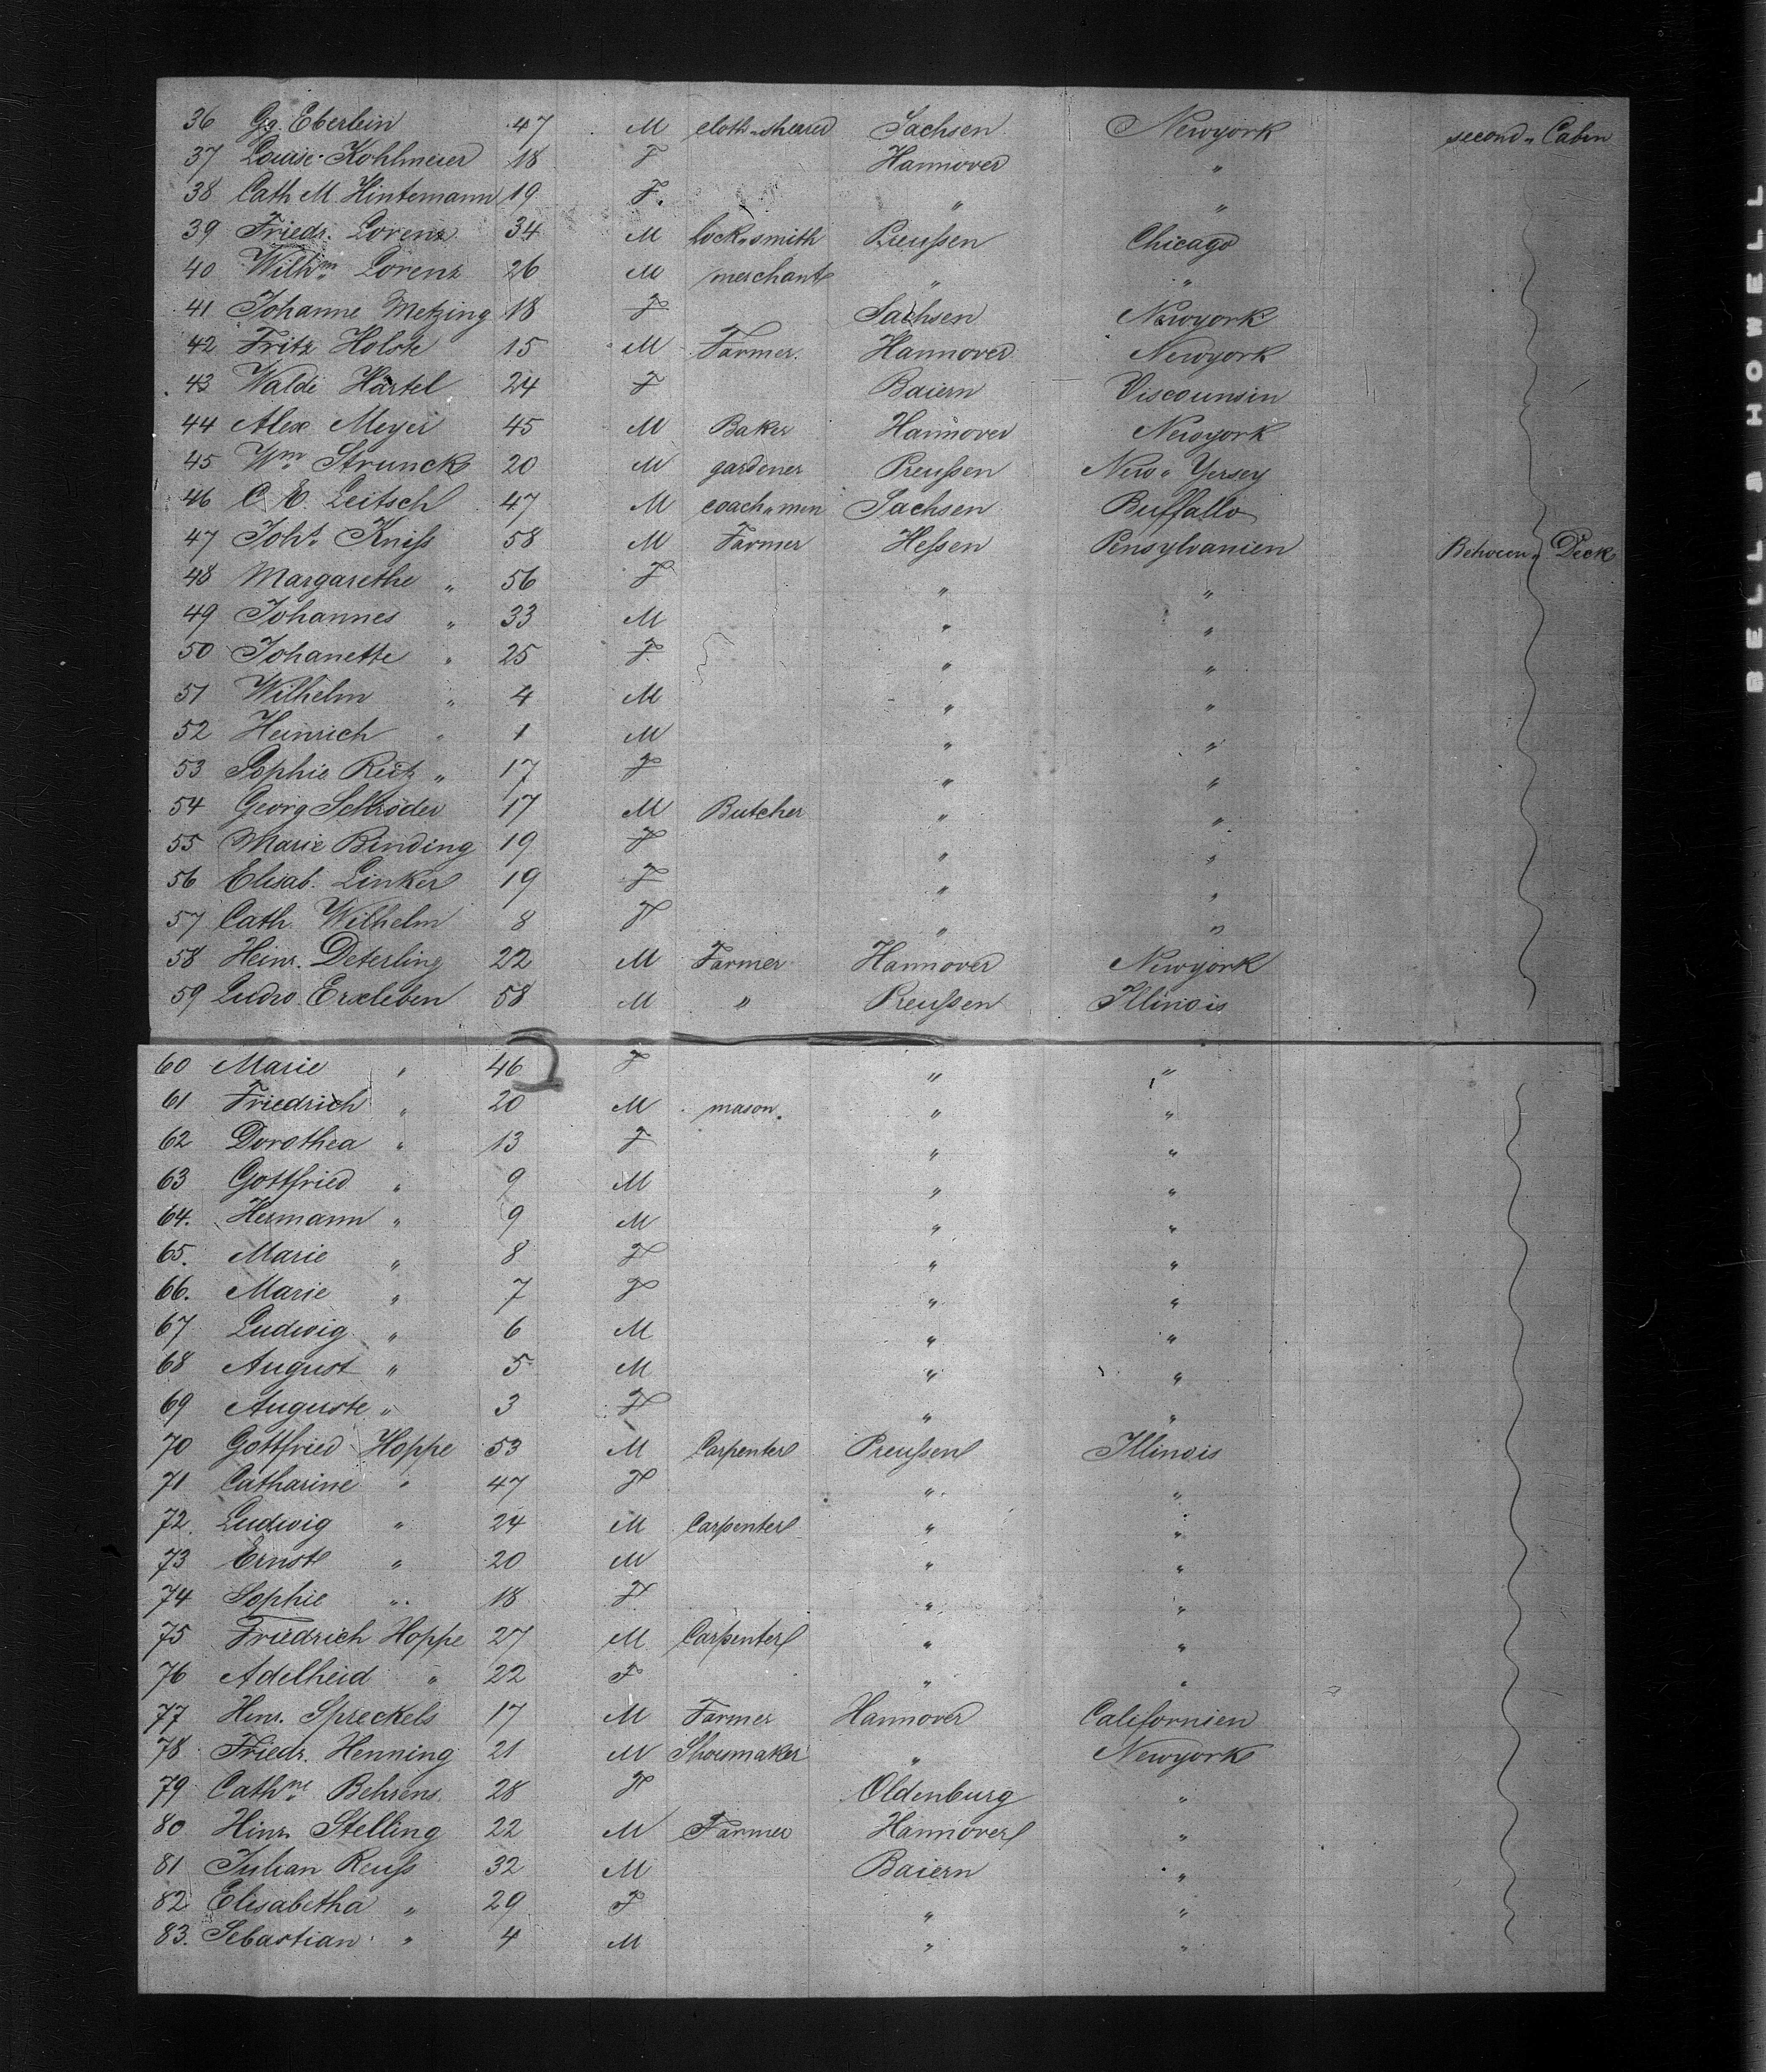 36 Gg. Eberlein 47 M cloth-shearer Sachsen Newyork second „ Cabin
37 Louise Kohlmeier 18 F Hannover „
38 Cath M. Hintemann 19 F. „ „
39 Friedr. Lorenz 34 M lock„smith Preußen Chicago
40 Wilhm Lorenz 26 M merchant „ „
41 Johanne Metzing 18 F Sachsen Newyork
42 Fritz Holste 15 M Farmer. Hannover Newyork
43 Waldi Härtel 24 F Baiern Viscounsin
44 Alex Meyer 45 M Baker Hannover Newyork
45 Wm Strunck 20 M gardener Preußen New„ Yersey
46 C. E. Leitsch 47 M coach„men Sachsen Buffallo
47 Joh. Kniss 58 M Farmer Heßen Pensylvanien Between„ Deck
48 Margarethe „ 56 F „ „
49 Johannes „ 33 M „ „
50 Johanette „ 25 F „ „
51 Wilhelm „ 4 M „ „
52 Heinrich „ 1 M „ „
53 Sophie Reitz „ 17 F „ „
54 Georg Schröder 17 M Butcher „ „
55 Marie Binding 19 F „ „
56 Elisab. Linker 19 F „ „
57 Cath. Wilhelm 8 F „ „
58 Heinr. Deterling 22 M Farmer Hannover Newyork
59 Ludw. Erxleben 58 M „ Preußen Illinois
60 Marie „ 46 F „ „
61 Friedrich „ 20 M mason. „ „
62 Dorothea „ 13 F „ „
63 Gottfried „ 9 M „ „
64. Hermann „ 9 M „ „
65. Marie „ 8 F „ „
66. Marie „ 7 F „ „
67 Ludwig „ 6 M „ „
68 August „ 5 M „ „
69 Auguste „ 3 F „ „
70 Gottfried Hoppe 53 M Carpenter Preußen Illinois
71 Catharine „ 47 F „ „
72. Ludwig „ 24 M Carpenter „ „
73 Ernst „ 20 M „ „
74 Sophie „ 18 F „ „
75 Friedrich Hoppe 27 M Carpenter „ „
76 Adelheid „ 22 F „ „
77 Henr. Spreckels 17 M Farmer Hannover Californien
78 Friedr. Henning 21 M Shoemaker „ Newyork
79 Cathne Behrens 28 F Oldenburg „
80 Hinr. Stelling 22 M Farmer Hannover „
81 Julian Reuss 32 M Baiern „
82 Elisabetha „ 29 F „ „
83. Sebastian „ 4 M „ „
BELL & HOWELL